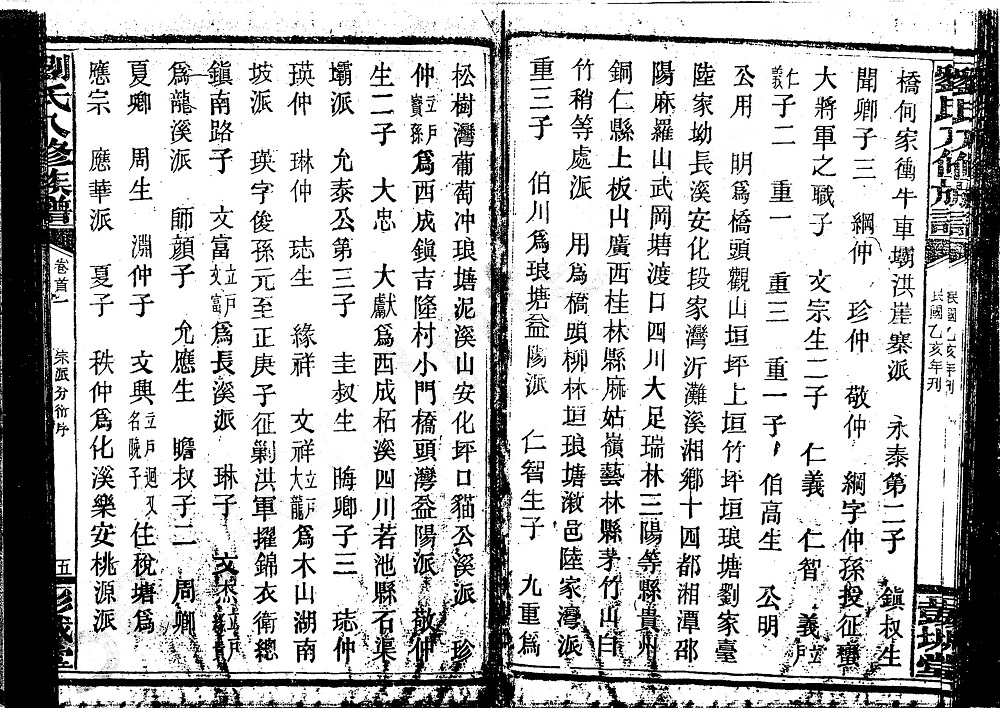 橋何家衝牛車壩洪崖寨派　永泰第二子　鎮叔生
聞卿子三　綱仲　珍仲　敬仲　綱字仲孫授征蠻
大將軍之職子　文宗生二子　仁義　仁智　義立戶
仁義子二　重一　重三　重一子　伯高生　公明
公用　明爲橋頭觀山垣坪上垣竹坪垣琅塘劉家臺
陸家坳長溪安化段家灣沂灘溪湘鄉十四都湘潭邵
陽麻羅山武岡塘渡口四川大足瑞林三陽等縣貴州
銅仁縣上板山廣西桂林縣麻姑嶺藝林縣茅竹山白
竹稍等處派　用爲橋頭柳林垣琅塘溆邑陸家灣派
重三子　伯川爲琅塘益陽派　仁智生子　九重爲
松樹灣葡萄冲琅塘泥溪山安化坪口貓公溪派　珍
仲立戶寶孫爲西成鎮吉隆村小門橋頭灣益陽派　敬仲
生二子　大忠　大獻爲西成柘溪四川若池縣石渠
壩派　允泰公第三子　圭叔生　晦卿子三　琺仲
瑛仲　琳仲　琺生　緣祥　文祥立戶大龍爲木山湖南
坡派　瑛字俊孫元至正庚子征剿洪軍擢錦衣衛總
鎮南路子　文富立戶文富爲長溪派　琳子　文
爲龍溪派　師顔子　允應生　瞻叔子二　周卿
夏卿　周生　淵仲子　文典立戶迴又名曉子住稅塘爲
應宗　應華派　夏子　秩仲爲化溪樂安桃源派
劉氏八修族譜
卷首一
宗派分衍序
五
彭城堂
民國乙亥年刊